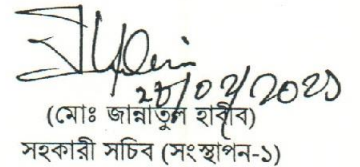 ২৮/০৭/২০২১
(মোঃ জান্নাতুল হাবীব)
সহকারী সচিব (সংস্থাপন-১)